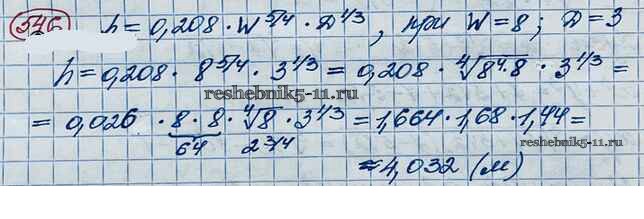 546 h = 0,208 · W^5/4 · D^1/3, при W = 8; D = 3
h = 0,208 · 8^5/4 · 3^1/3 = 0,208 · ⁴√(8⁴·8) · 3^1/3 =
reshebnik5-11.ru
= 0,026 · 8 · 8 · ⁴√8 · 3^1/3 = 1,664 · 1,68 · 1,44 =
64 2^3/4
reshebnik5-11.ru
≈ 4,032 (м)